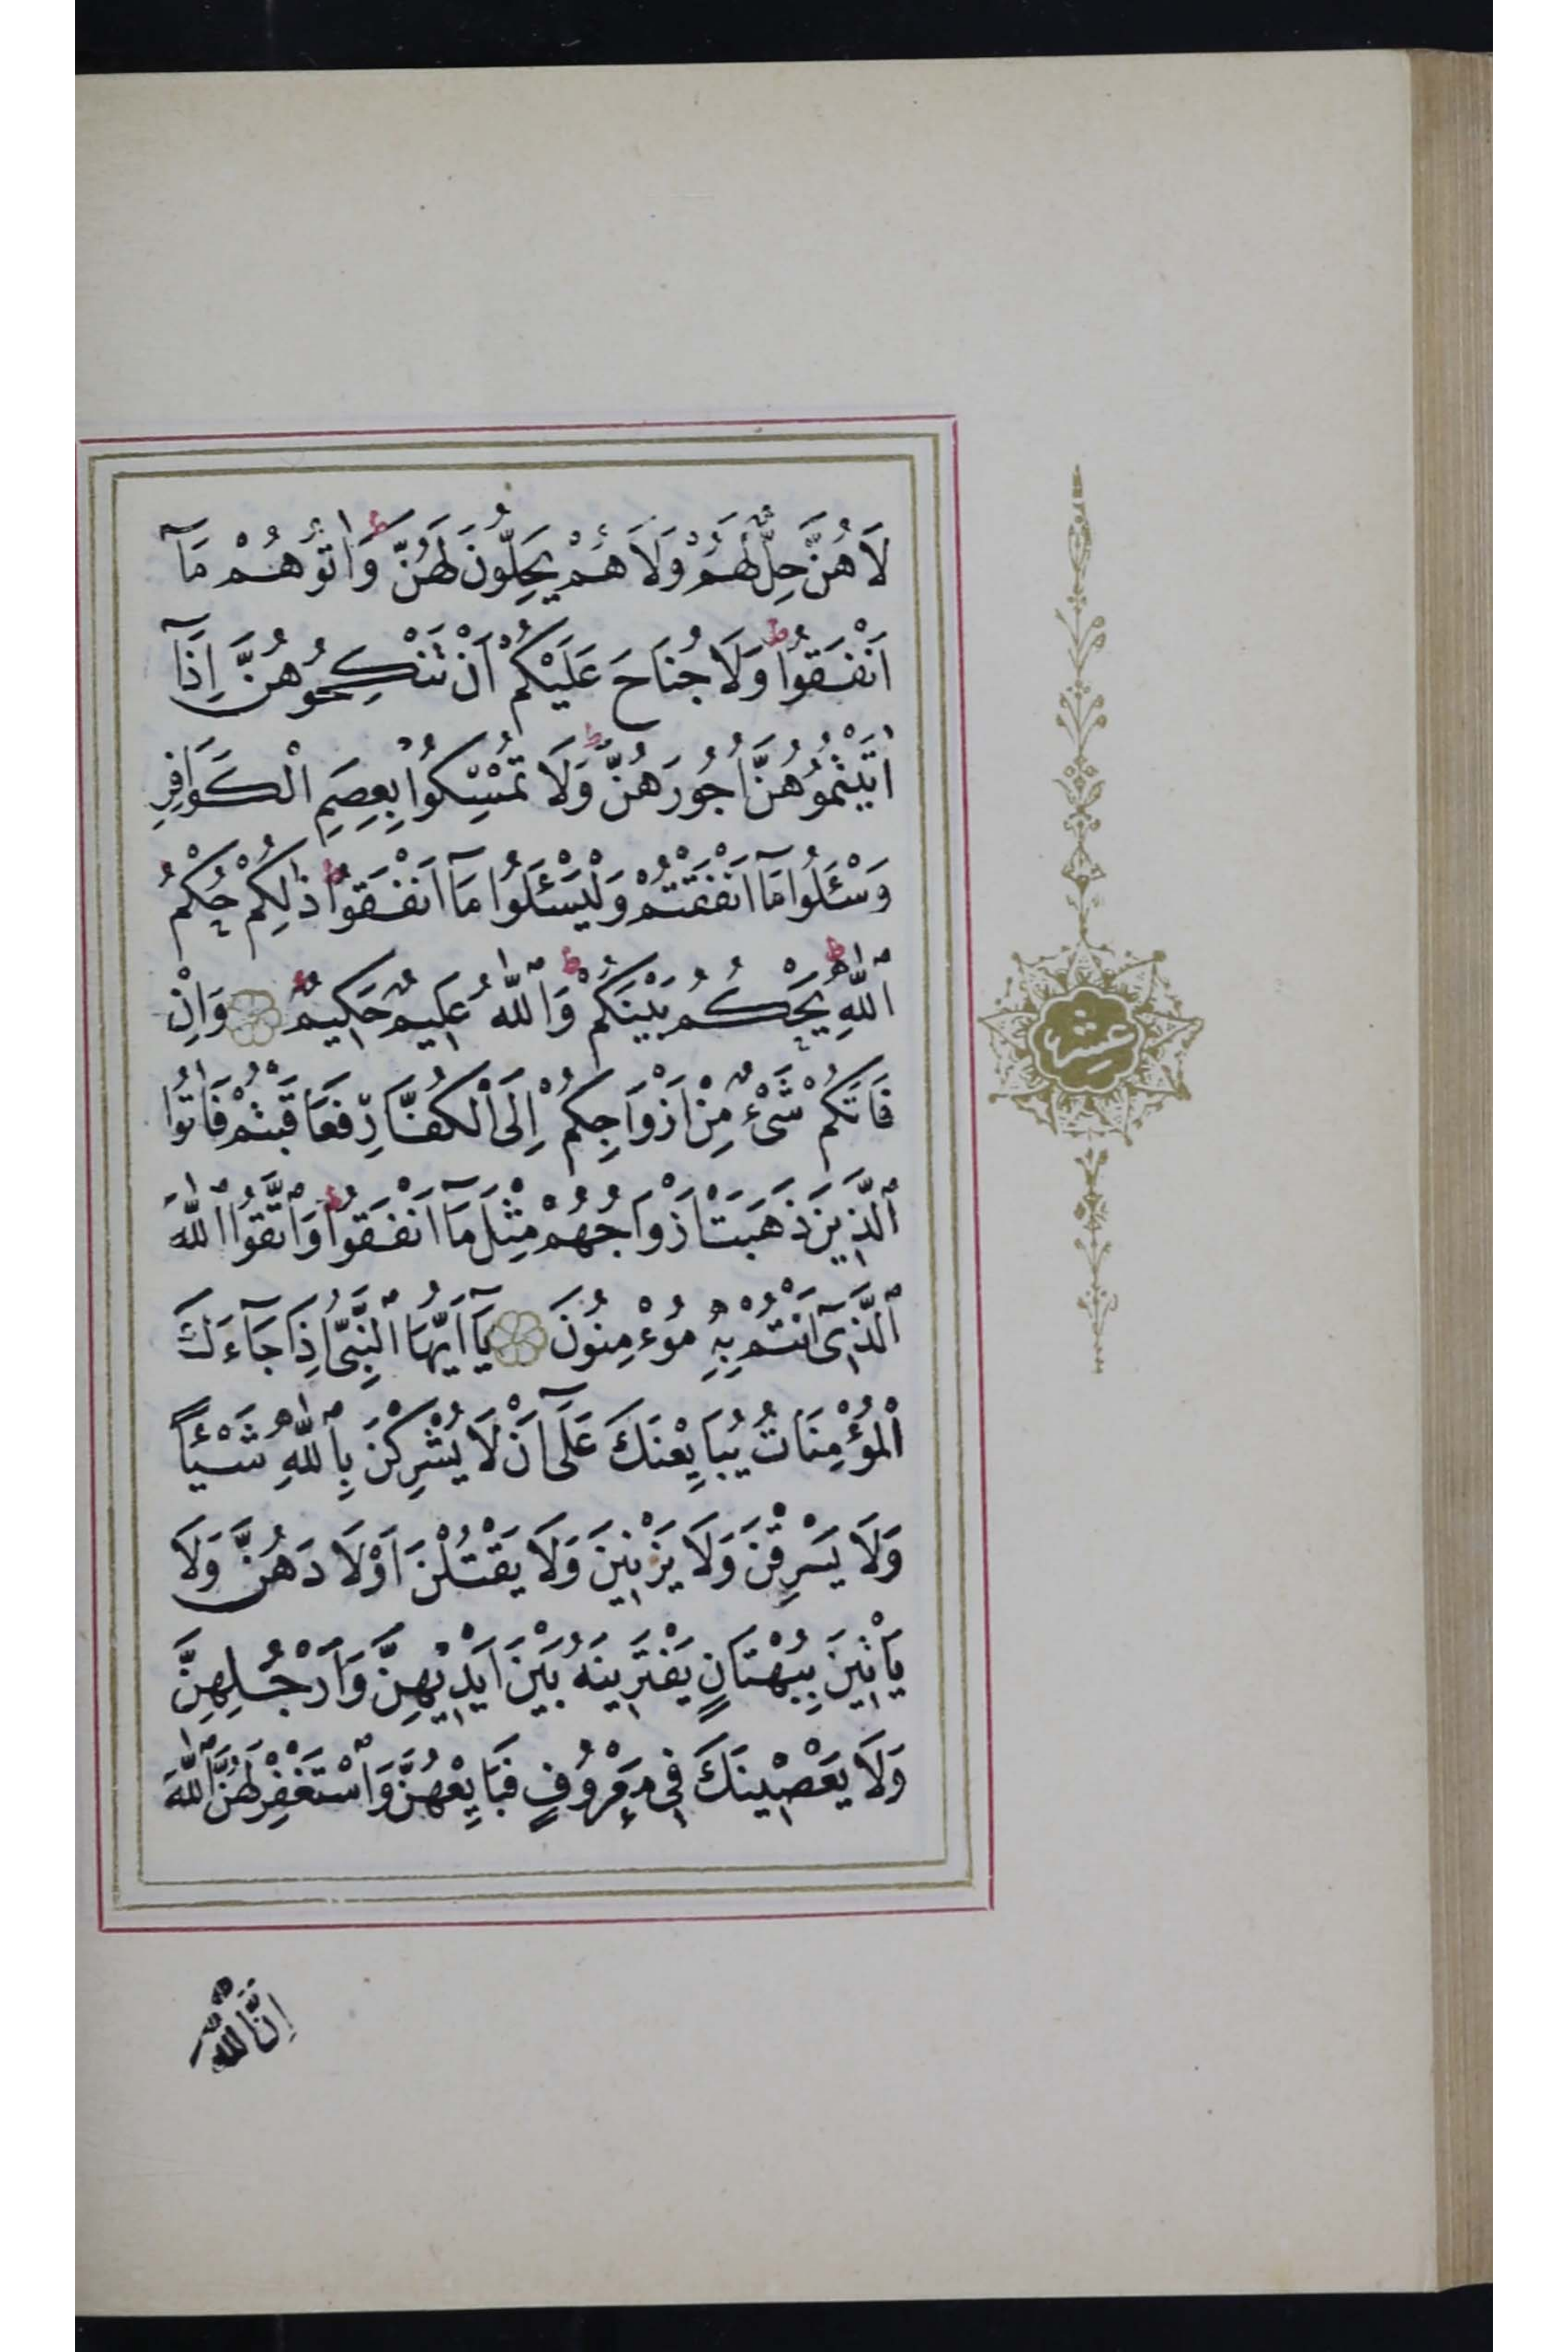 لَا هُنَّ حِلٌّ لَهُمْ وَلَا هُمْ يَحِلُّونَ لَهُنَّ ط وَاٰتُوهُمْ مَآ
اَنْفَقُوا ط وَلَا جُنَاحَ عَلَيْكُمْ اَنْ تَنْكِحُوهُنَّ اِذَآ
اٰتَيْتُمُوهُنَّ اُجُورَهُنَّ ط وَلَا تُمْسِكُوا بِعِصَمِ الْكَوَافِرِ
وَسْئَلُوا مَآ اَنْفَقْتُمْ وَلْيَسْئَلُوا مَآ اَنْفَقُوا ط ذٰلِكُمْ حُكْمُ
ٱللّٰهِ ط يَحْكُمُ بَيْنَكُمْ ط وَٱللّٰهُ عَلِيمٌ حَكِيمٌ وَاِنْ
فَاتَكُمْ شَىْءٌ مِنْ اَزْوَاجِكُمْ اِلَى ٱلْكُفَّارِ فَعَاقَبْتُمْ فَاٰتُوا
ٱلَّذِينَ ذَهَبَتْ اَزْوَاجُهُمْ مِثْلَ مَآ اَنْفَقُوا ط وَٱتَّقُوا ٱللّٰهَ
ٱلَّذِىٓ اَنْتُمْ بِهٖ مُؤْمِنُونَ يَآ اَيُّهَا ٱلنَّبِىُّ اِذَا جَآءَكَ
ٱلْمُؤْمِنَاتُ يُبَايِعْنَكَ عَلَىٓ اَنْ لَا يُشْرِكْنَ بِٱللّٰهِ شَيْئًا
وَلَا يَسْرِقْنَ وَلَا يَزْنِينَ وَلَا يَقْتُلْنَ اَوْلَادَهُنَّ وَلَا
يَاْتِينَ بِبُهْتَانٍ يَفْتَرِينَهُ بَيْنَ اَيْدِيهِنَّ وَاَرْجُلِهِنَّ
وَلَا يَعْصِينَكَ فِى مَعْرُوفٍ فَبَايِعْهُنَّ وَٱسْتَغْفِرْ لَهُنَّ ٱللّٰهَ
اِنَّ ٱللّٰهَ
عشر